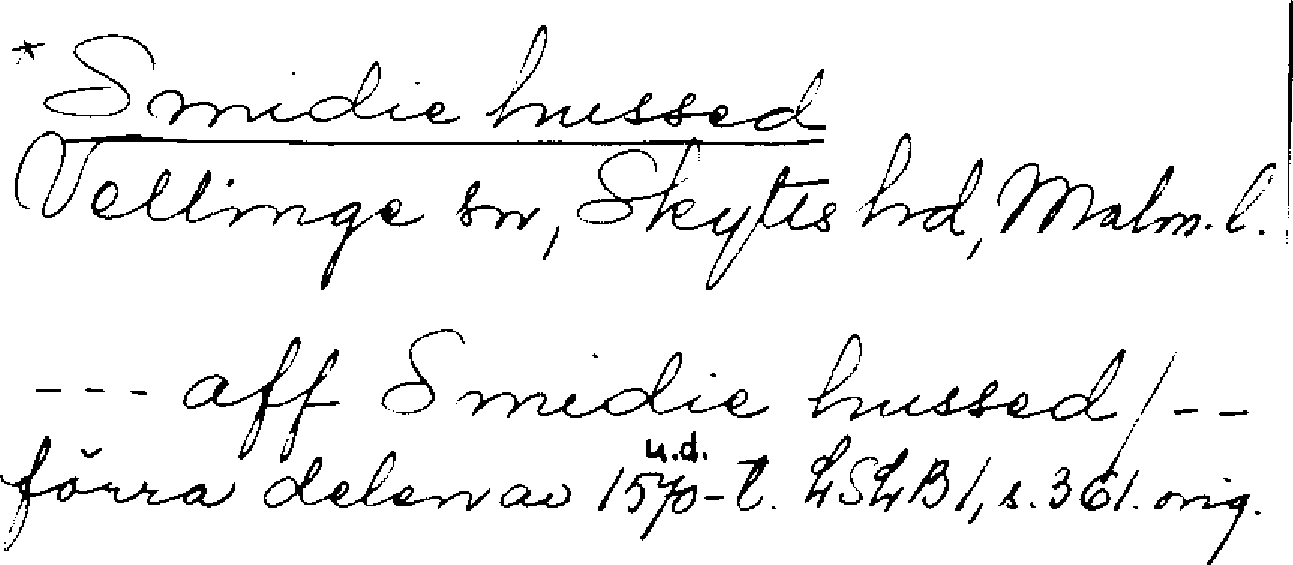 *Smidie hussed
Vellinge sn, Skytts hrd, Malm. l.
--- aff Smidie hussed/--
u.d.
förra delen av 1570-t. LSLB 1, s. 361. orig.